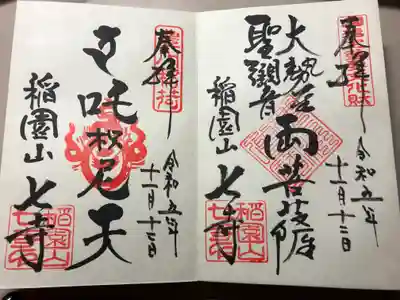 奉拝
重要文化財
令和五年
十一月十二日
大勢至
聖観音
両菩薩
稲園山
七寺
稲園山
七寺
奉拝
令和五年
十一月十二日
吒枳尼天
稲園山
七寺
稲園山
七寺